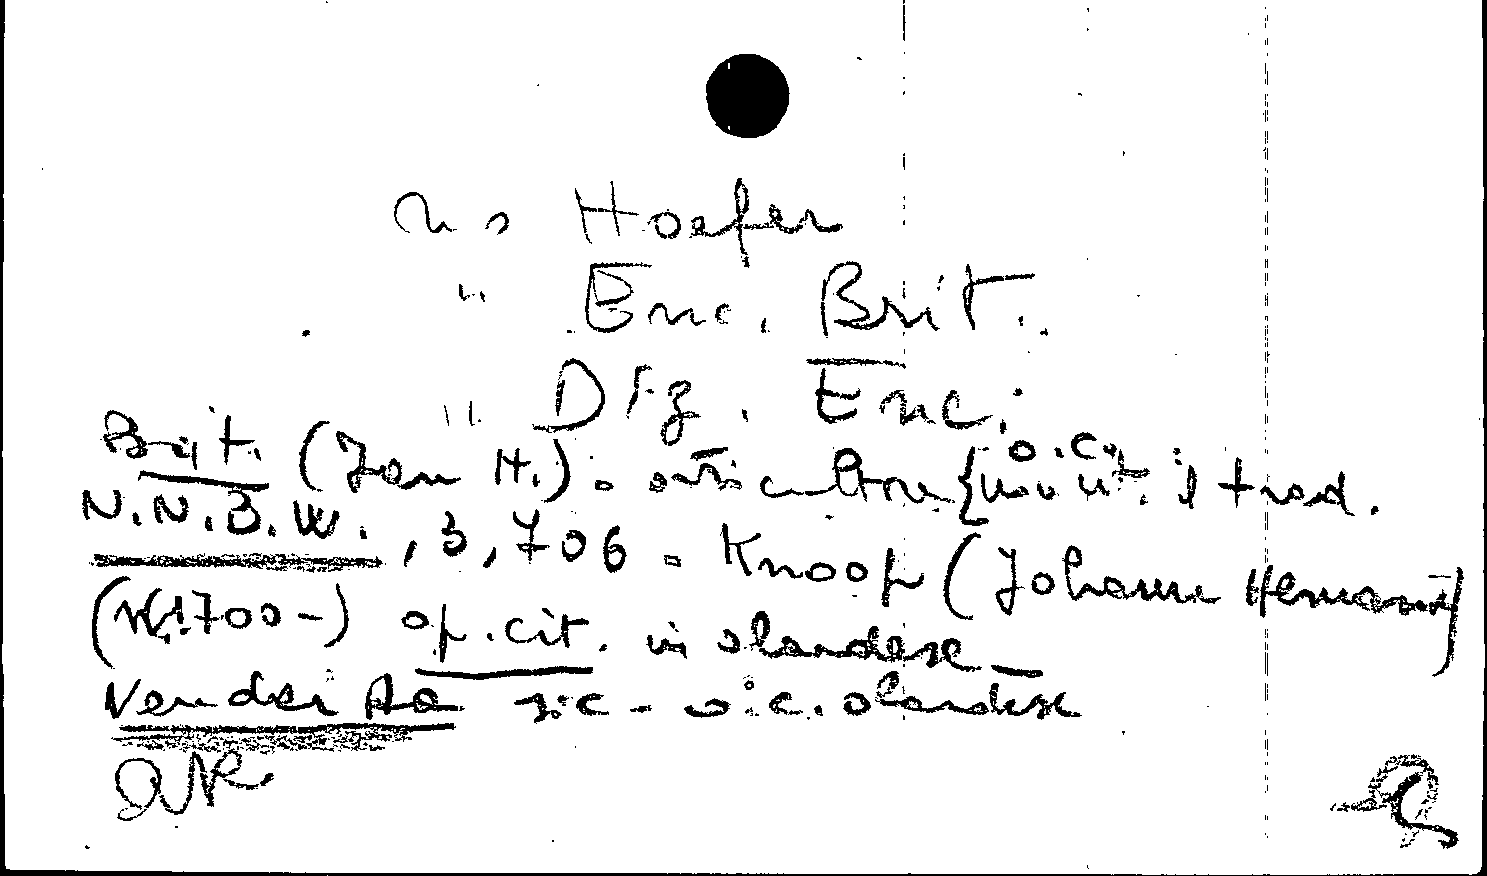 no Hoefer
" Enc. Brit.
" Diz. Enc.
Brit. (Jan H.) = orticultore { o.c.
non cit. il trad.
N.N.B.W., 3, 706 = Knoop (Johann Hermann)
(N. 1700-) op. cit. in olandese
Van der Aa sic - o.c. olandese